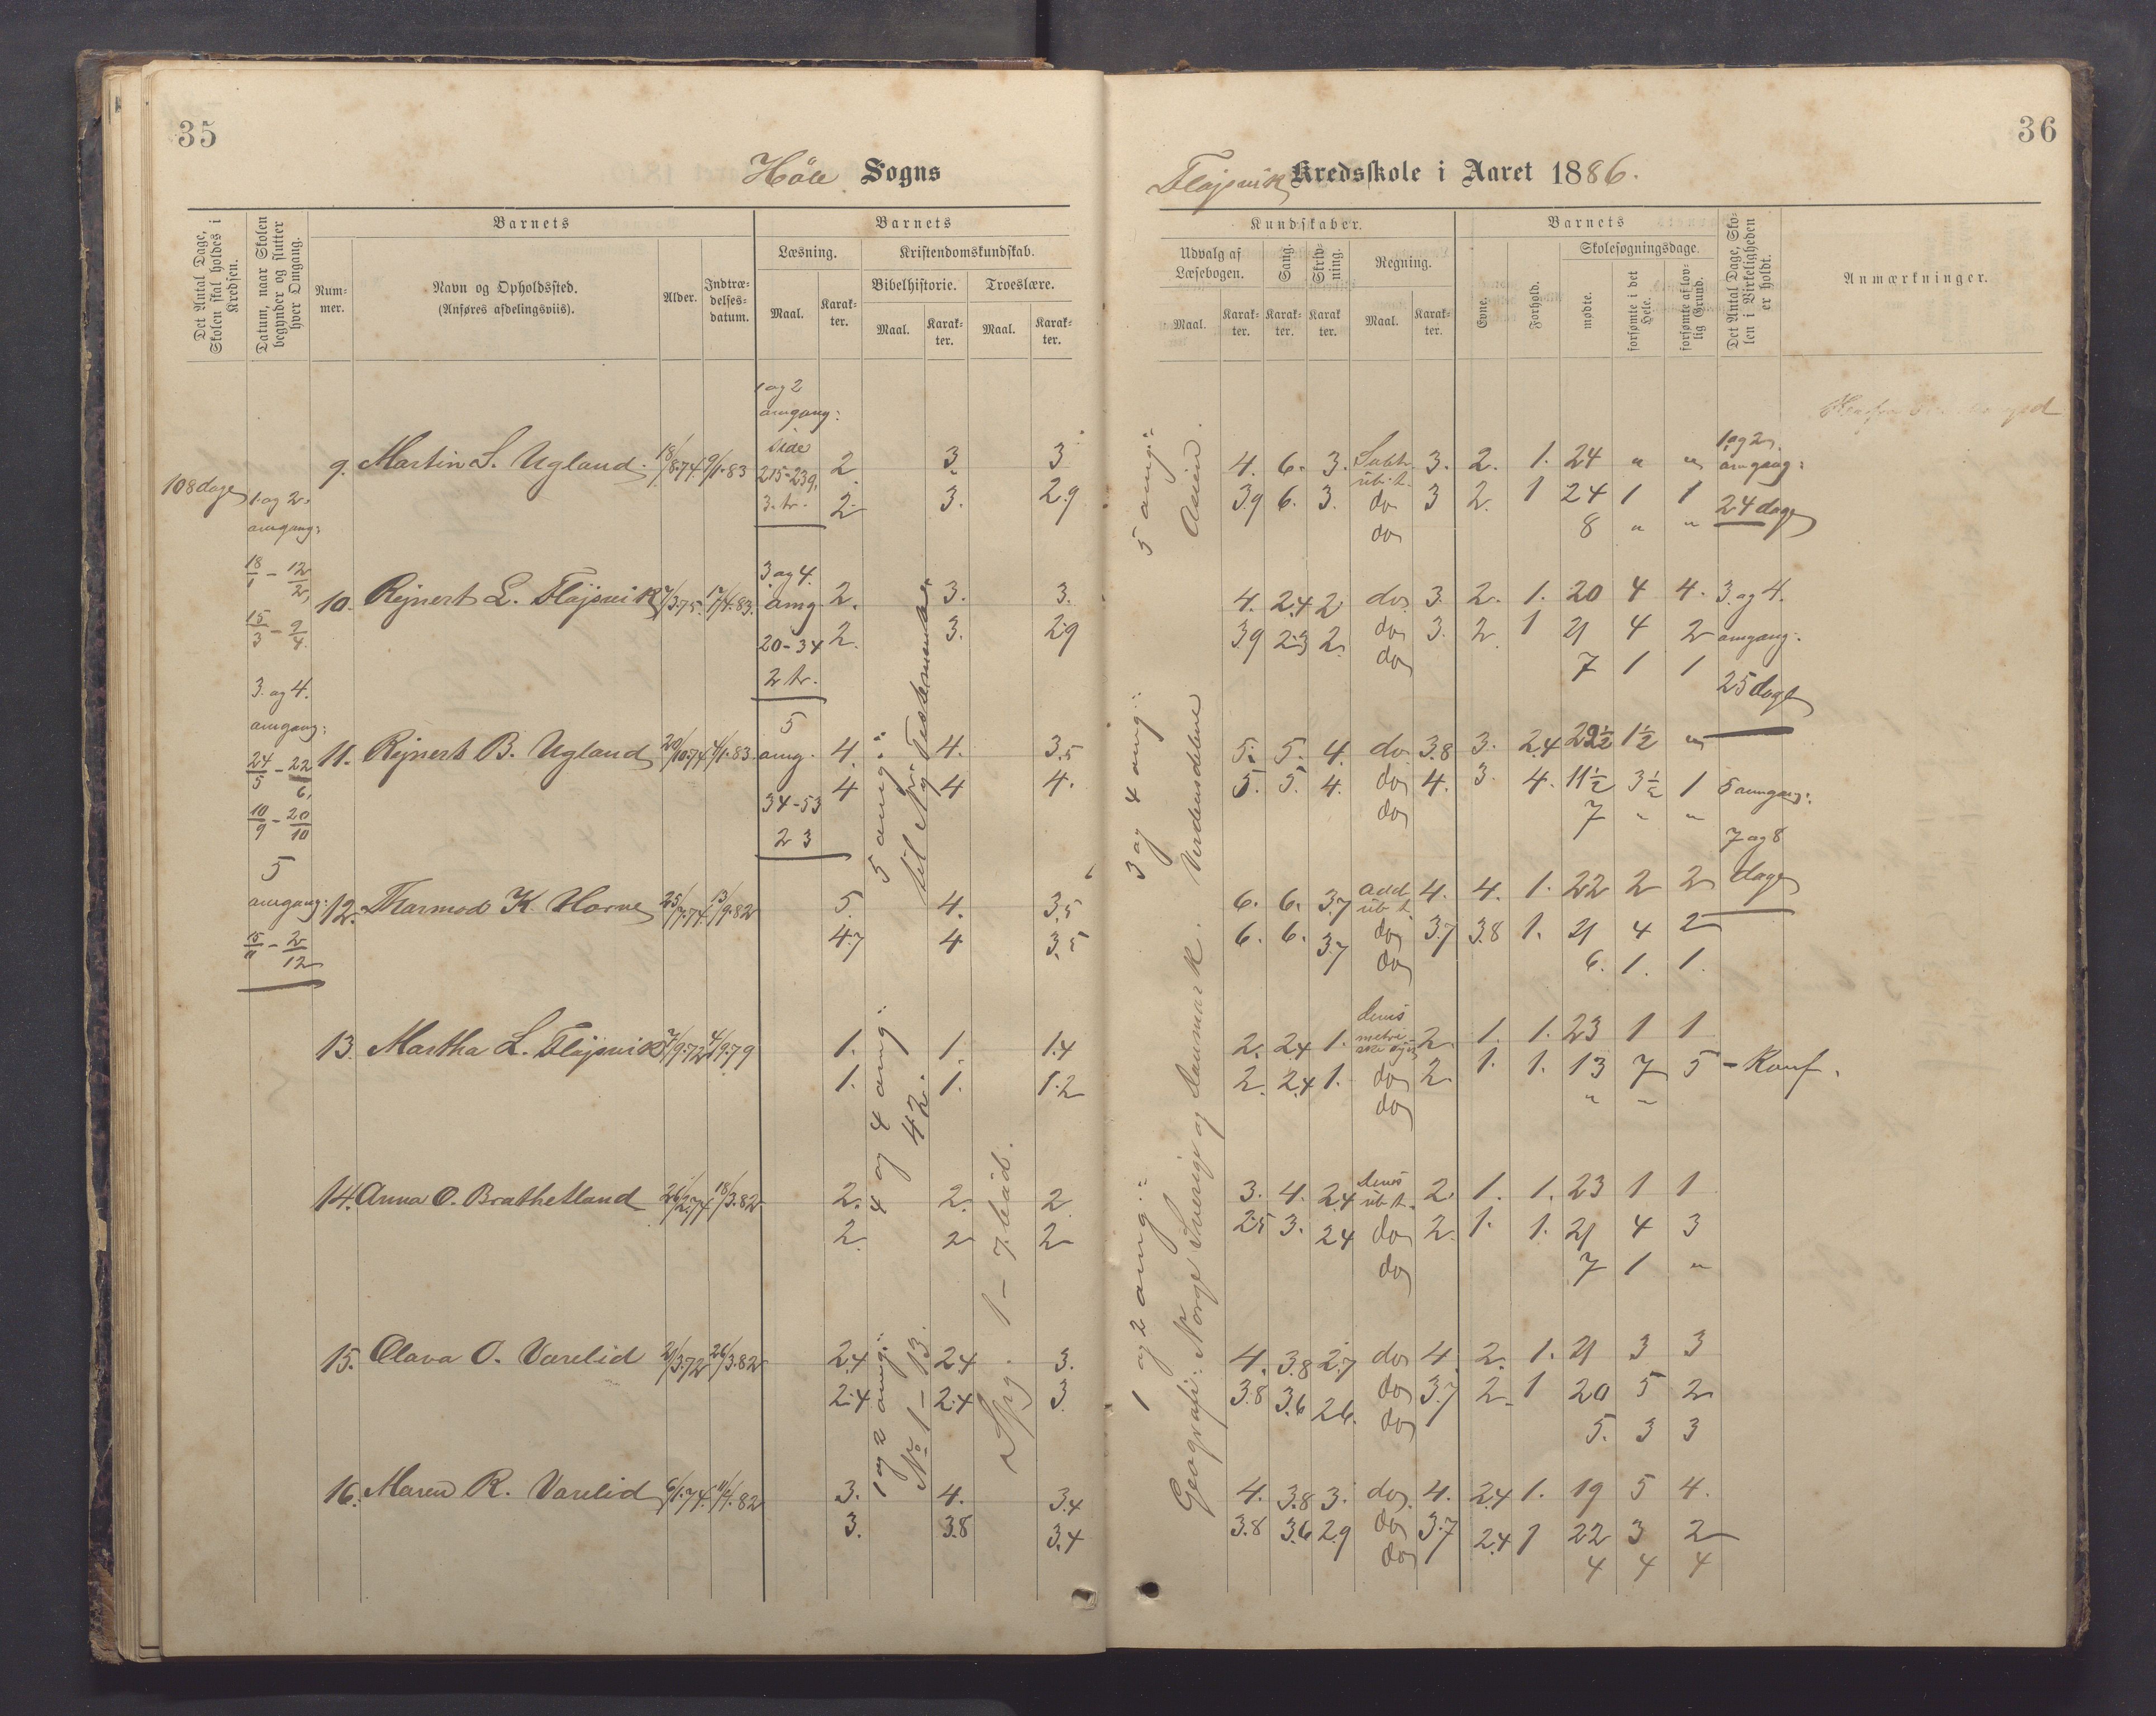 35
Höle Sogns
Det Antal Dage, Skolen skal holdes i Kredsen.
Datum, naar Skolen begynder og slutter hver Omgang.
Barnets
Num-mer.
Navn og Opholdssted.
(Anføres afdelingsviis).
Alder.
Indtræ-delses-datum.
Barnets
Læsning.
Maal.
Karak-ter.
Kristendomskundskab.
Bibelhistorie.
Maal.
Karak-ter.
Troeslære.
Maal.
Karak-ter.
108 dage
1 og 2
omgang:
18/1 - 12/2,
15/3 - 9/4.
3. og 4.
omgang:
24/5 - 22/6,
10/9 - 20/10
5
omgang:
15/11 - 2/12
1 og 2
omgang:
Side
215-239,
3. tr.
3 og 4.
omg.
20-34
2 tr.
5
omg.
34-53
2 3
9. Martin S. Ugland. 18/8.74. 9/1.83 2. 3 3
2. 3. 2.9
10. Rejnert L. Fløjsvik 7/3.75. 17/4.83. 2. 3. 3.
2. 3. 2.9
11. Rejnert B. Ugland 20/10.74 4/1.83. 4. 4. 3.5
4 4 4.
12. Thormod K. Horve 25/7.74. 13/9.82 5. 4. 3.5
4.7 4 3.5
13. Martha L. Fløjsvik 7/9.72 4/9.79 1. 1. 1.4
1. 1. 1.2
14. Anna O. Brathetland 26/2.74 18/3.82 2. 2. 2
2. 2 2
15. Olava O. Varelid 21/3.72 26/3.82 2.4 2.4 3.
2.4 2.4 3
16. Maren R. Varelid 6/1.74. 11/4.82 3. 4. 3.4
3. 3.8 3.4
5 omg:
til Ny Testamente.
4 og 4 omg:
42.
1 og 2 omg:
No 1 - 13.
Spg. 1 - 7. bud.
36
Fløjsvik Kredsskole i Aaret 1886.
Kundskaber.
Udvalg af Læsebogen.
Maal.
Karak-ter.
Sang.
Karak-ter.
Skriv-ning.
Karak ter.
Regning.
Maal.
Karak-ter.
Barnets
Evne.
Forhold.
Skolesøgningsdage.
mødte.
forsømte i det Hele.
forsømte af lov-lig Grund.
Det Antal Dage, Sko-len i Virkeligheden er holdt.
Anmærkninger.
5 omg:
Asien.
3 og 4 omg:
Verdensdelene
1 og 2 omg:
Geografi: Norge Sverige og Danmark.
4. 6. 3. Subtr. ub. t. 3. 2. 1. 24 " "
3.9 6. 3. do 3 2. 1 24 1 1
do 8 " "
4. 2.4 2. do 3. 2. 1. 20 4 4.
3.9 2.3 2. do 3. 2. 1 21 4 2
do 7 1 1
5. 5. 4. do 3.8 3. 2.4 22½ 1½ "
5. 5. 4. do 4. 3. 4. 11½ 3½ 1
do 7 " "
6. 6. 3.7 add ub t. 4. 4. 1. 22 2 2
6. 6. 3.7 do 3.7 3.8 1. 21 4 2
do 6. 1. 1.
2. 2.4 1. 2. 1. 1. 23 1 1
2. 2.4 1. do 2. 1. 1. 13 7 5 - Konf.
do " "
3. 4. 2.4 ub t. 2. 1. 1. 23 1 1
2.5 3. 2.4 do 2. 1. 1. 21 4 3
do 7 1 "
4. 3.8 2.7 do 4. 2. 1. 21 3 3
3.8 3.6 2.6. do 3.7 2. 1 20 5 2
do 5. 3 3
4. 3.8 3. do. 4. 2.4 1. 19 5 4.
3.8 3.6 2.9 do 3.7 2.4 1 22 3 2
do 4 4 4
1 og 2
omgang:
24 dage
3. og 4.
omgang:
25 dage
5 omgang:
7 og 8
dage